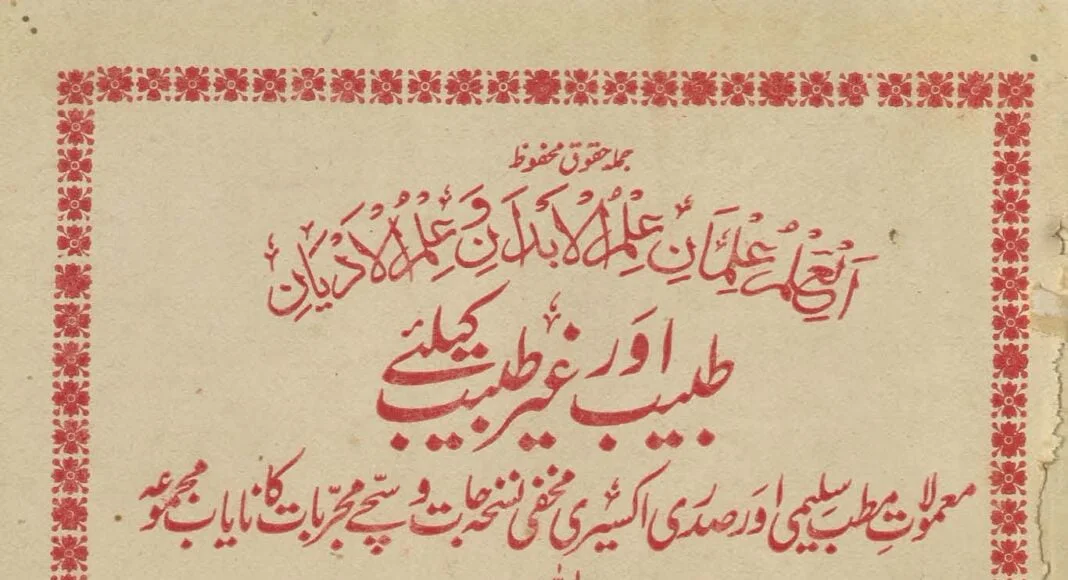 جملہ حقوق محفوظ
اَلْعِلْمُ عِلْمَانِ عِلْمُ الْاَبْدَانِ وَ عِلْمُ الْاَدْیَانِ
طبیب اور غیر طبیب کیلئے
معمولاتِ مطب سلیمی اور صدری اکسیری مخفی نسخہ جات و سچے مجرّبات کا نایاب مجموعہ